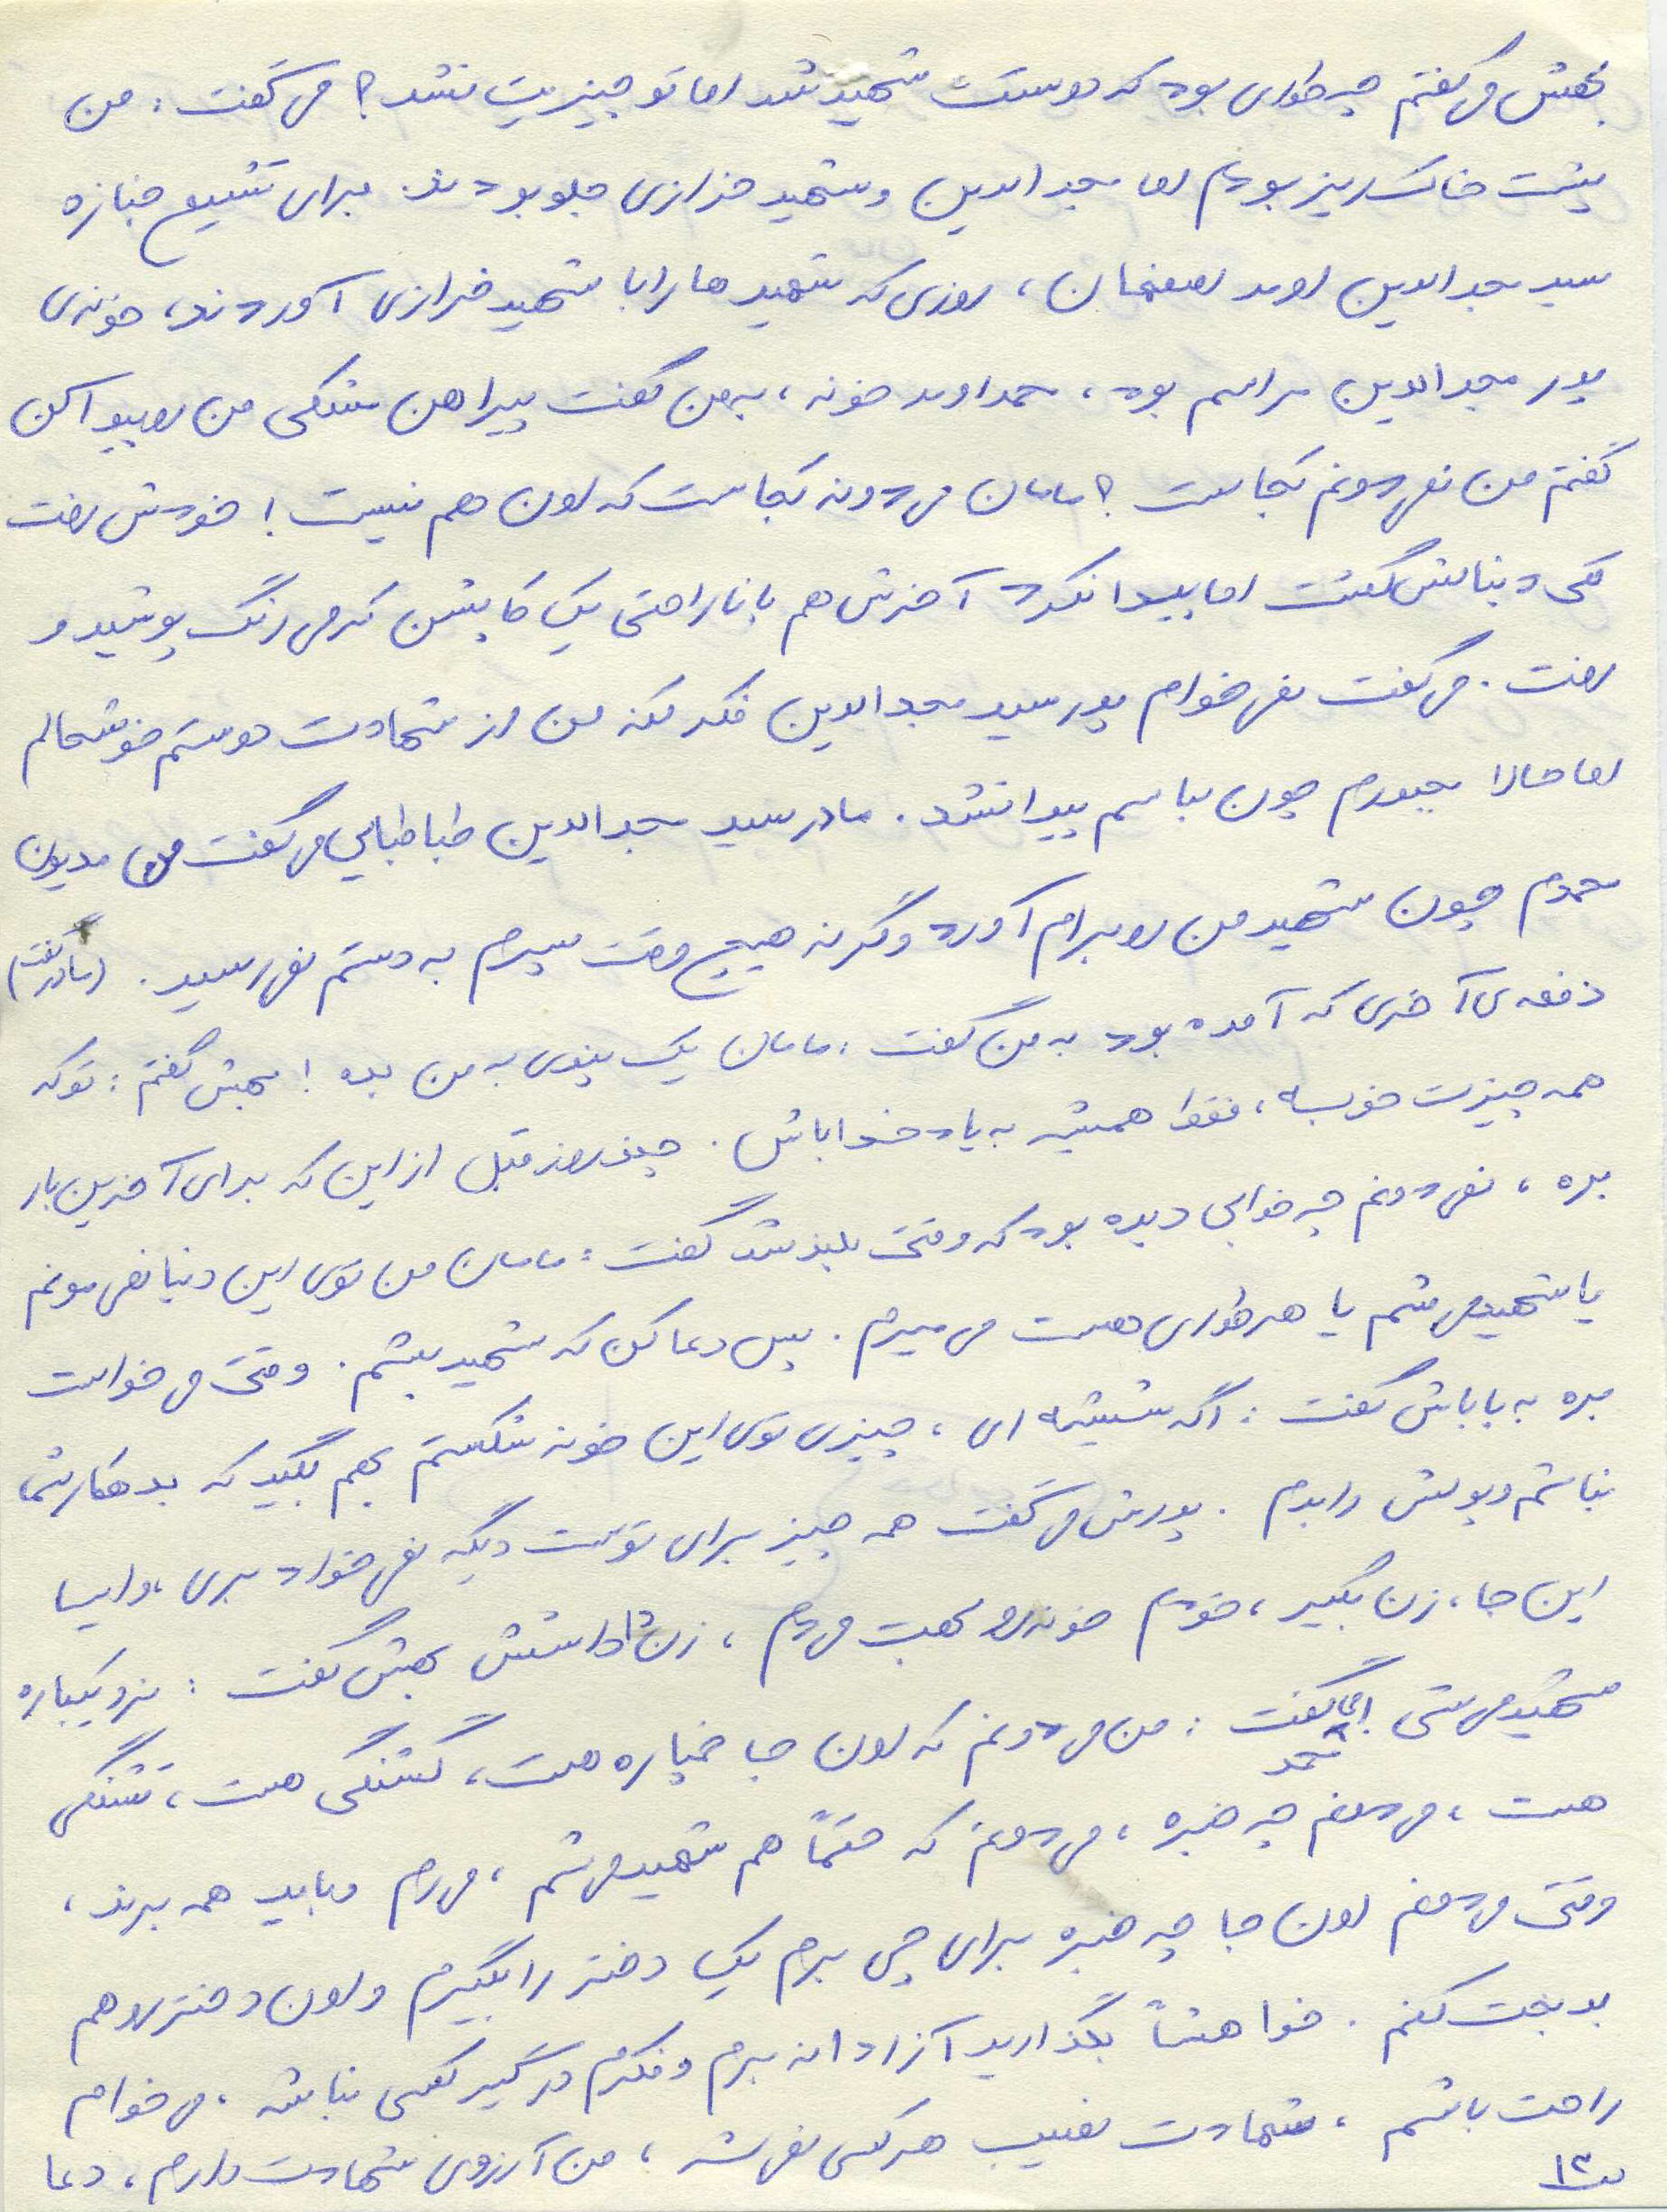 بهش می گفتم چه طوری بود که دوستت شهید شد اما تو چیزیت نشد؟ می گفت: من
پشت خاکریز بودم اما مجدالدین و شهید خرازی جلو بودند. برای تشییع جنازه
سید مجدالدین اومد اصفهان، روزی که شهیدها را با شهید خرازی آوردند، خونه‌ی
پدر مجدالدین مراسم بود، محمد اومد خونه، به من گفت پیراهن مشکی من رو پیدا کن
گفتم من نمی دونم کجاست؟ مامان می دونه کجاست که اون هم نیست! خودش رفت
کمی دنبالش گشت اما پیدا نکرد آخرش هم با ناراحتی یک کاپشن کرمی رنگ پوشید و
رفت. می گفت نمی خوام پدر سید مجدالدین فکر کنه من از شهادت دوستم خوشحالم
اما حالا مجبورم چون لباسم پیدا نشد. مادر سید مجدالدین طباطبایی می گفت من مدیون
محمدم چون شهید من رو برام آورد وگرنه هیچ وقت پسرم به دستم نمی رسید. (مادر گفت)
دفعه ی آخری که آمده بود به من گفت: مامان یک پندی به من بده! بهش گفتم: تو که
همه چیزت خوبه، فقط همیشه به یاد خدا باش. چند روز قبل از این که برای آخرین بار
بره، نمی دونم چه خوابی دیده بود که وقتی بلند شد گفت: مامان من توی این دنیا نمی مونم
یا شهید می شم یا هر طوری هست می میرم. پس دعا کن که شهید بشم. وقتی می خواست
بره به باباش گفت: اگه شیشه ای، چیزی توی این خونه شکستم بهم بگید که بدهکار شما
نباشم و پولش را بدم. پدرش می گفت همه چیز برای توست دیگه نمی خواد بری، وایسا
این جا، زن بگیر، خودم خونه رو بهت می دم، زن داداشش بهش گفت: نرو یکباره
شهید می شی اما محمد گفت: من می دونم که اون جا خمپاره هست، گشنگی هست، تشنگی
هست، می دونم چه خبره، می دونم که حتماً هم شهید می شم، می رم و باید همه برند،
وقتی می دونم اون جا چه خبره برای چی برم یک دختر را بگیرم و اون دختر رو هم
بدبخت کنم. خواهشاً بگذارید آزادانه برم و فکرم درگیر کسی نباشه. می خوام
راحت باشم، شهادت نصیب هر کسی نمی شه، من آرزوی شهادت دارم، دعا
ص۱۲